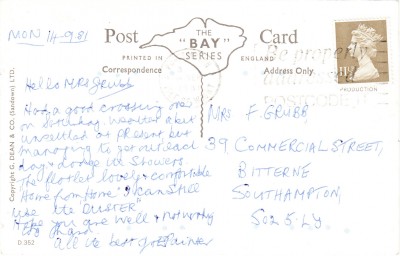 MON 14-9-81
Post Card
THE
"BAY"
SERIES
PRINTED IN ENGLAND
Correspondence
Address Only
Be properly
addressed
POSTCODE
Hello Mrs Grubb
Had a good crossing over
on Saturday, weather a bit
unsettled at present but
managing to get out each
day & dodge the showers.
The flat is lovely & comfortable
Home from Home" I can still
use the DUSTER"
Hope you are well & not working
too hard
All the best
Mrs F. GRUBB
39, COMMERCIAL STREET,
BITTERNE
SOUTHAMPTON,
SO2 5LY
Copyright C. DEAN & CO. (Sandown) LTD.
D 352